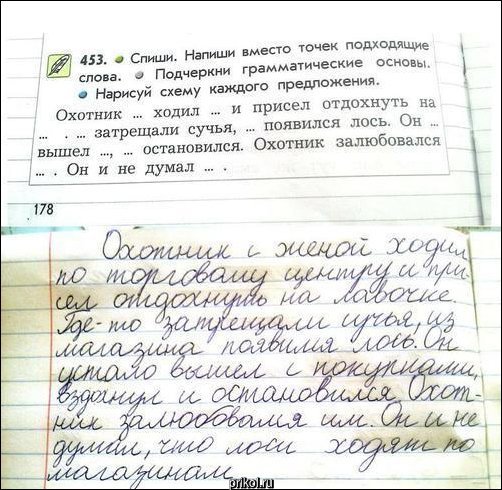 453. Спиши. Напиши вместо точек подходящие
слова. Подчеркни грамматические основы.
Нарисуй схему каждого предложения.
Охотник ... ходил ... и присел отдохнуть на
... . ... затрещали сучья, ... появился лось. Он ...
вышел ..., ... остановился. Охотник залюбовался
... . Он и не думал ... .
178
Охотник с женой ходил
по торговому центру и при-
сел отдохнуть на лавочке.
Где-то затрещали сучья, из
магазина появился лось. Он
устало вышел с покупками,
вздохнул и остановился. Охот-
ник залюбовался им. Он и не
думал, что лоси ходят по
магазинам
prikol.ru